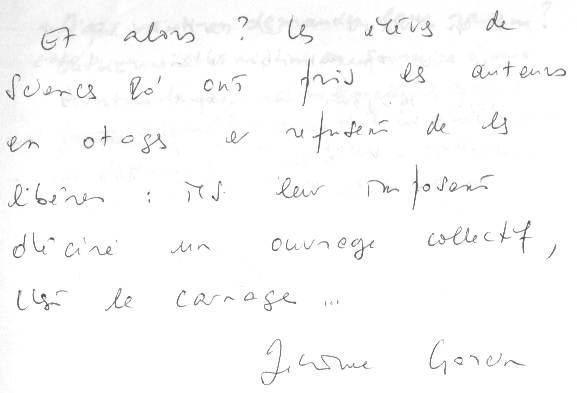 Et alors ? les élèves de
Sciences Po' ont pris les auteurs
en otages et refusent de les
libérer : ils leur imposent
d'écire un ouvrage collectif,
c'est le carnage ...
Jérôme